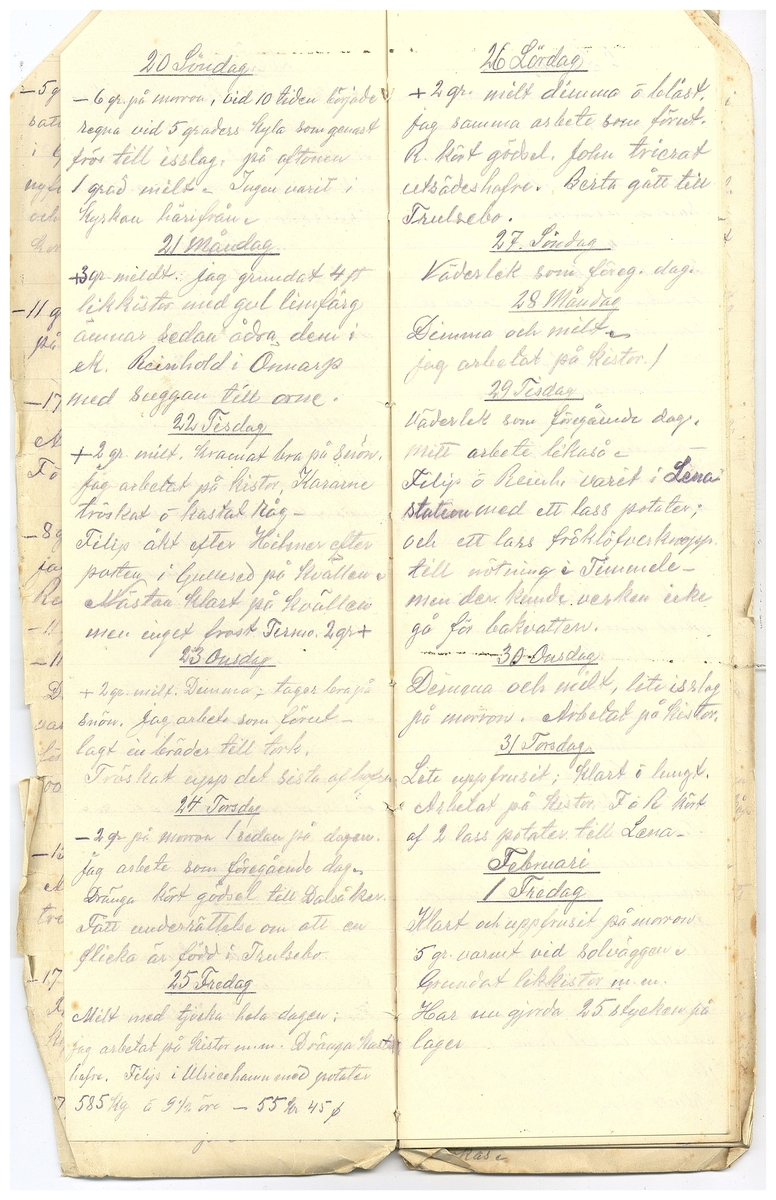 20 Söndag
– 6 gr. på morron, vid 10 tiden började
regna vid 5 graders kyla som genast
frös till isslag. på aftonen
1 grad milt – Ingen varit i
Kyrkan härifrån –
21 Måndag
+3 gr mildt. jag grundat 4 st
likkistor med gul limfärg
ämnar sedan ådra dem i
ek. Reinhold i Önnarp
med suggan till orne.
22 Tisdag
+2 gr. milt. kramat bra på snön.
jag arbetat på kistor, Kararne
tröskat o kastat Råg –
Filip åkt efter Hilmer efter
posten i Gullered på kvällen –
Nästan klart på kvällen
men inget frost Termo. 2 gr +
23 Onsdag
+ 2 gr. milt. Dimma; tager bra på
snön. jag arbete som förut –
lagt in bräder till tork.
Tröskat upp det sista af
24 Torsdag
– 2 gr på morron 1 sedan på dagen.
jag arbete som föregående dag –
Dränga kört gödsel till Dalsåker.
Fått underrättelse om att en
flicka är född i Trulsebo.
25 Fredag
Milt med tjocka hela dagen;
jag arbetat på kistor m.m. Dränga kast
hafre. Filip i Ulricehamn med potater
585 kg à 9½ öre – 55 kr 45 ö
26 Lördag
+2 gr. milt dimma o blåst.
jag samma arbete som förut.
R. kört gödsel. John trierat
utsädeshafre. Berta gått till
Trulsebo.
27. Söndag
Väderlek som föreg. dag.
28 Måndag
Dimma och milt –
jag arbetat på kistor. /
29 Tisdag
Väderlek som föregående dag.
mitt arbete likaså –
Filip o Reinh. varit i Lena
station med ett lass potater;
och ett lass fröklöfverknopp.
till nötning i Timmele –
men der kunde verken icke
gå för bakvatten.
30 Onsdag
Dimma och milt, lite isslag
på morron. Arbetat på kistor.
31 Torsdag
Lite uppfrusit; klart o lungt.
Arbetat på kistor. F o R kört
af 2 lass potater till Lena –
Februari
1 Fredag
Klart och uppfrusit på morron
5 gr. varmt vid solväggen –
Grundat likkistor m.m.
Har nu gjorda 25 stycken på
lager